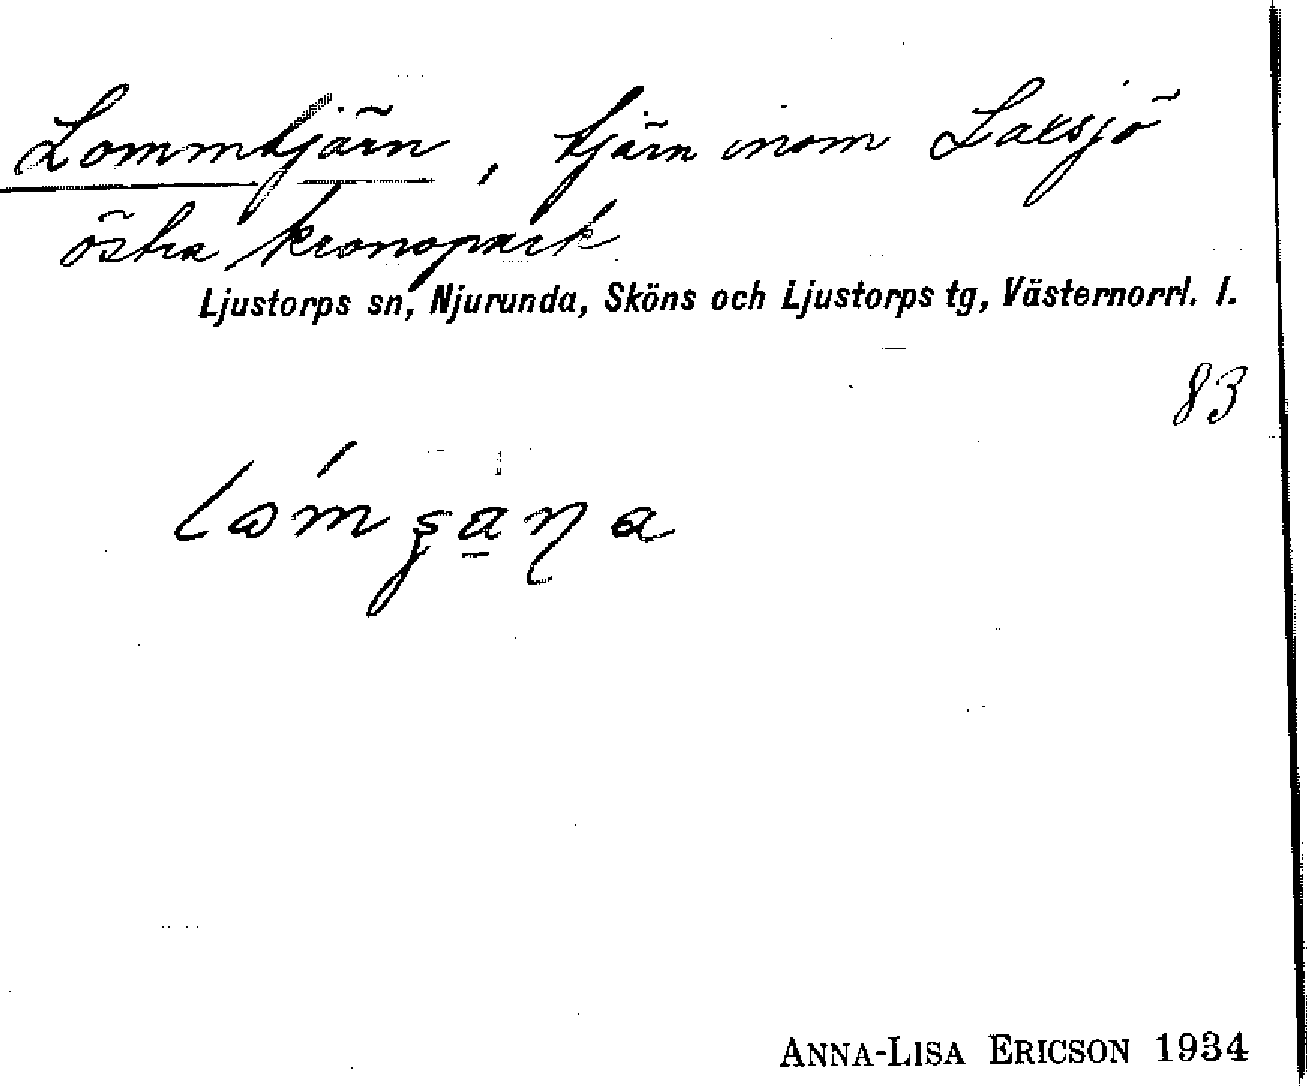 Lommtjärn, tjärn inom Laksjö
östra kronopark
Ljustorps sn, Njurunda, Sköns och Ljustorps tg, Västernorrl. l.
83
ANNA-LISA ERICSON 1934